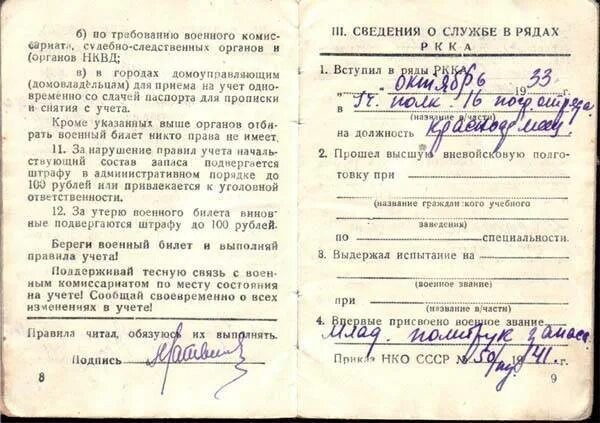 б) по требованию военного комис-
сариата, судебно-следственных органов и
(органов НКВД;
в) в городах домоуправляющим
(домовладельцам) для приема на учет одно-
временно со сдачей паспорта для прописки
и снятия с учета.
Кроме указанных выше органов отби-
рать военный билет никто права не имеет.
11. За нарушение правил учета началь-
ствующий состав запаса подвергается
штрафу в административном порядке до
100 рублей или привлекается к уголовной
ответственности.
12. За утерю военного билета винов-
ные подвергаются штрафу до 100 рублей.
Береги военный билет и выполняй
правила учета!
Поддерживай тесную связь с воен-
ным комиссариатом по месту состояния
на учете! Сообщай своевременно о всех
изменениях в учете!
Правила читал, обязуюсь их выполнять.
Подпись
8
III. СВЕДЕНИЯ О СЛУЖБЕ В РЯДАХ
РККА
1. Вступил в ряды РККА
„ “ октябрь 1933 г.
в полк 16 погранотряда
(название в/части)
на должность красноармеец
2. Прошел высшую вневойсковую подго-
товку при
(название гражданского учебного
заведения)
по специальности.
3. Выдержал испытание на
(военное звание)
при
(название в/части)
4. Впервые присвоено военное звание
Млад. политрук запаса
Приказ НКО СССР № 150/пу 1941 г.
9